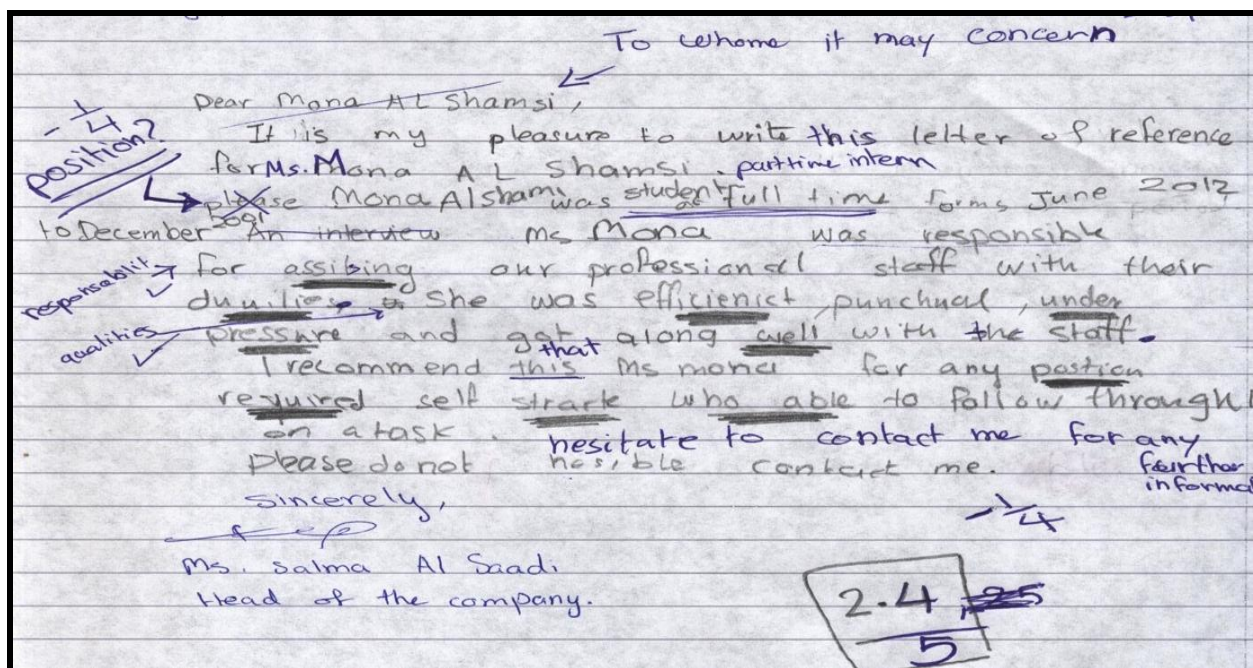 To whome it may concern
Dear Mona AL Shamsi,
It is my pleasure to write this letter of reference
for Ms. Mona AL Shamsi. part time intern
-1/4
position?
please Mona Alshami was student as full time forms June 2012
to December 2001 An interview ms Mona was responsible
responsablit
for assibing our professional staff with their
duuilies She was efficienict, punchual, under
qualities
pressure and got along well with the staff.
that
I recommend this Ms mona for any postion
required self strarte who able to follow through
on a task. hesitate to contact me for any
Please do not hesible contact me. fourther
informat
Sincerely,
-1/4
Ms. Salma Al Saadi
Head of the company.
2.4
5